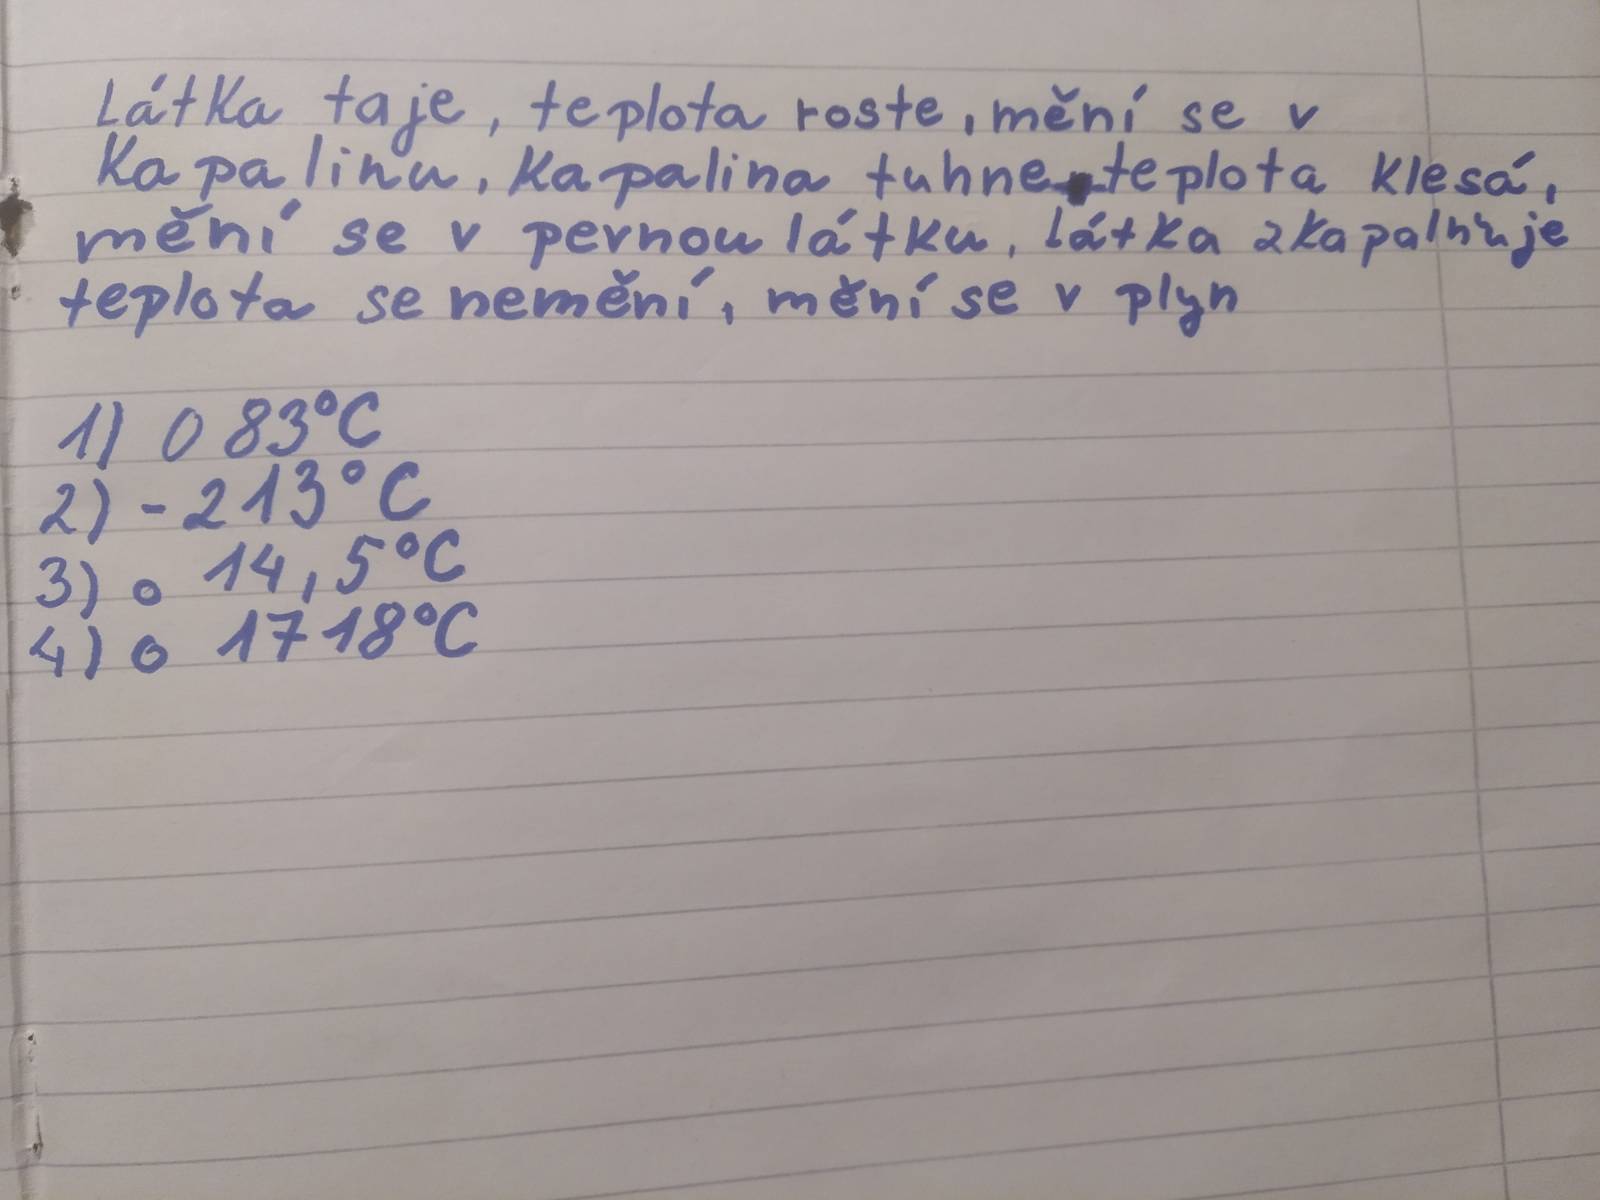 Látka taje, teplota roste, mění se v
Kapalinu, Kapalina tuhne, teplota klesá,
mění se v pevnou látku, látka zkapalňuje
teplota se nemění, mění se v plyn
1) o 83°C
2) -213°C
3) o 14,5°C
4) o 1718°C